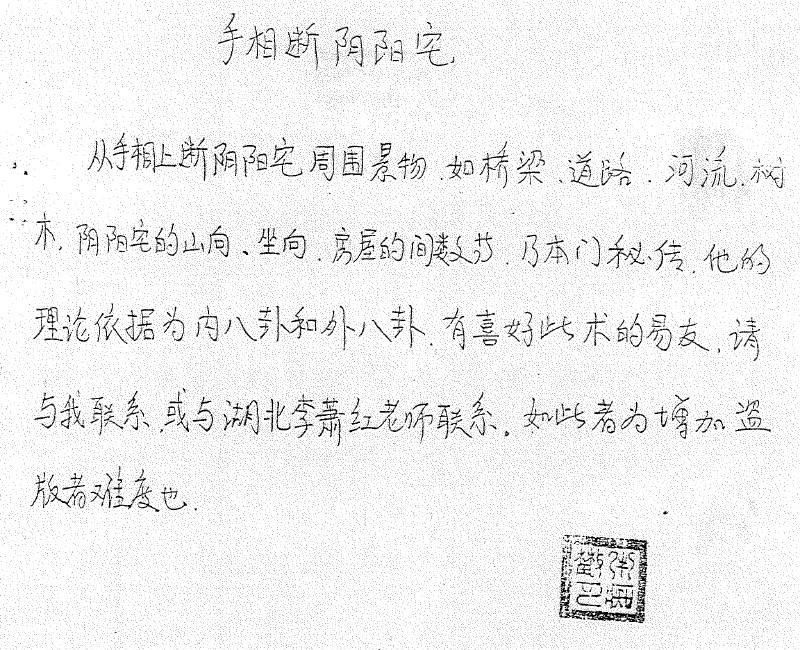 手相断阴阳宅
从手相上断阴阳宅周围景物.如桥梁、道路.河流.树
木.阴阳宅的山向、坐向.房屋的间数等.乃本门秘传.他的
理论依据为内八卦和外八卦.有喜好此术的易友,请
与我联系.或与湖北李萧红老师联系。如此者为增加盗
版者难度也.